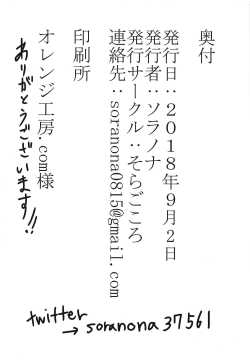 奥付
発行日：２０１８年９月２日
発行者：ソラノナ
発行サークル：そらごころ
連絡先：soranona0815@gmail.com
印刷所
オレンジ工房.com様
ありがとうございます!!
twitter
→ soranona37561